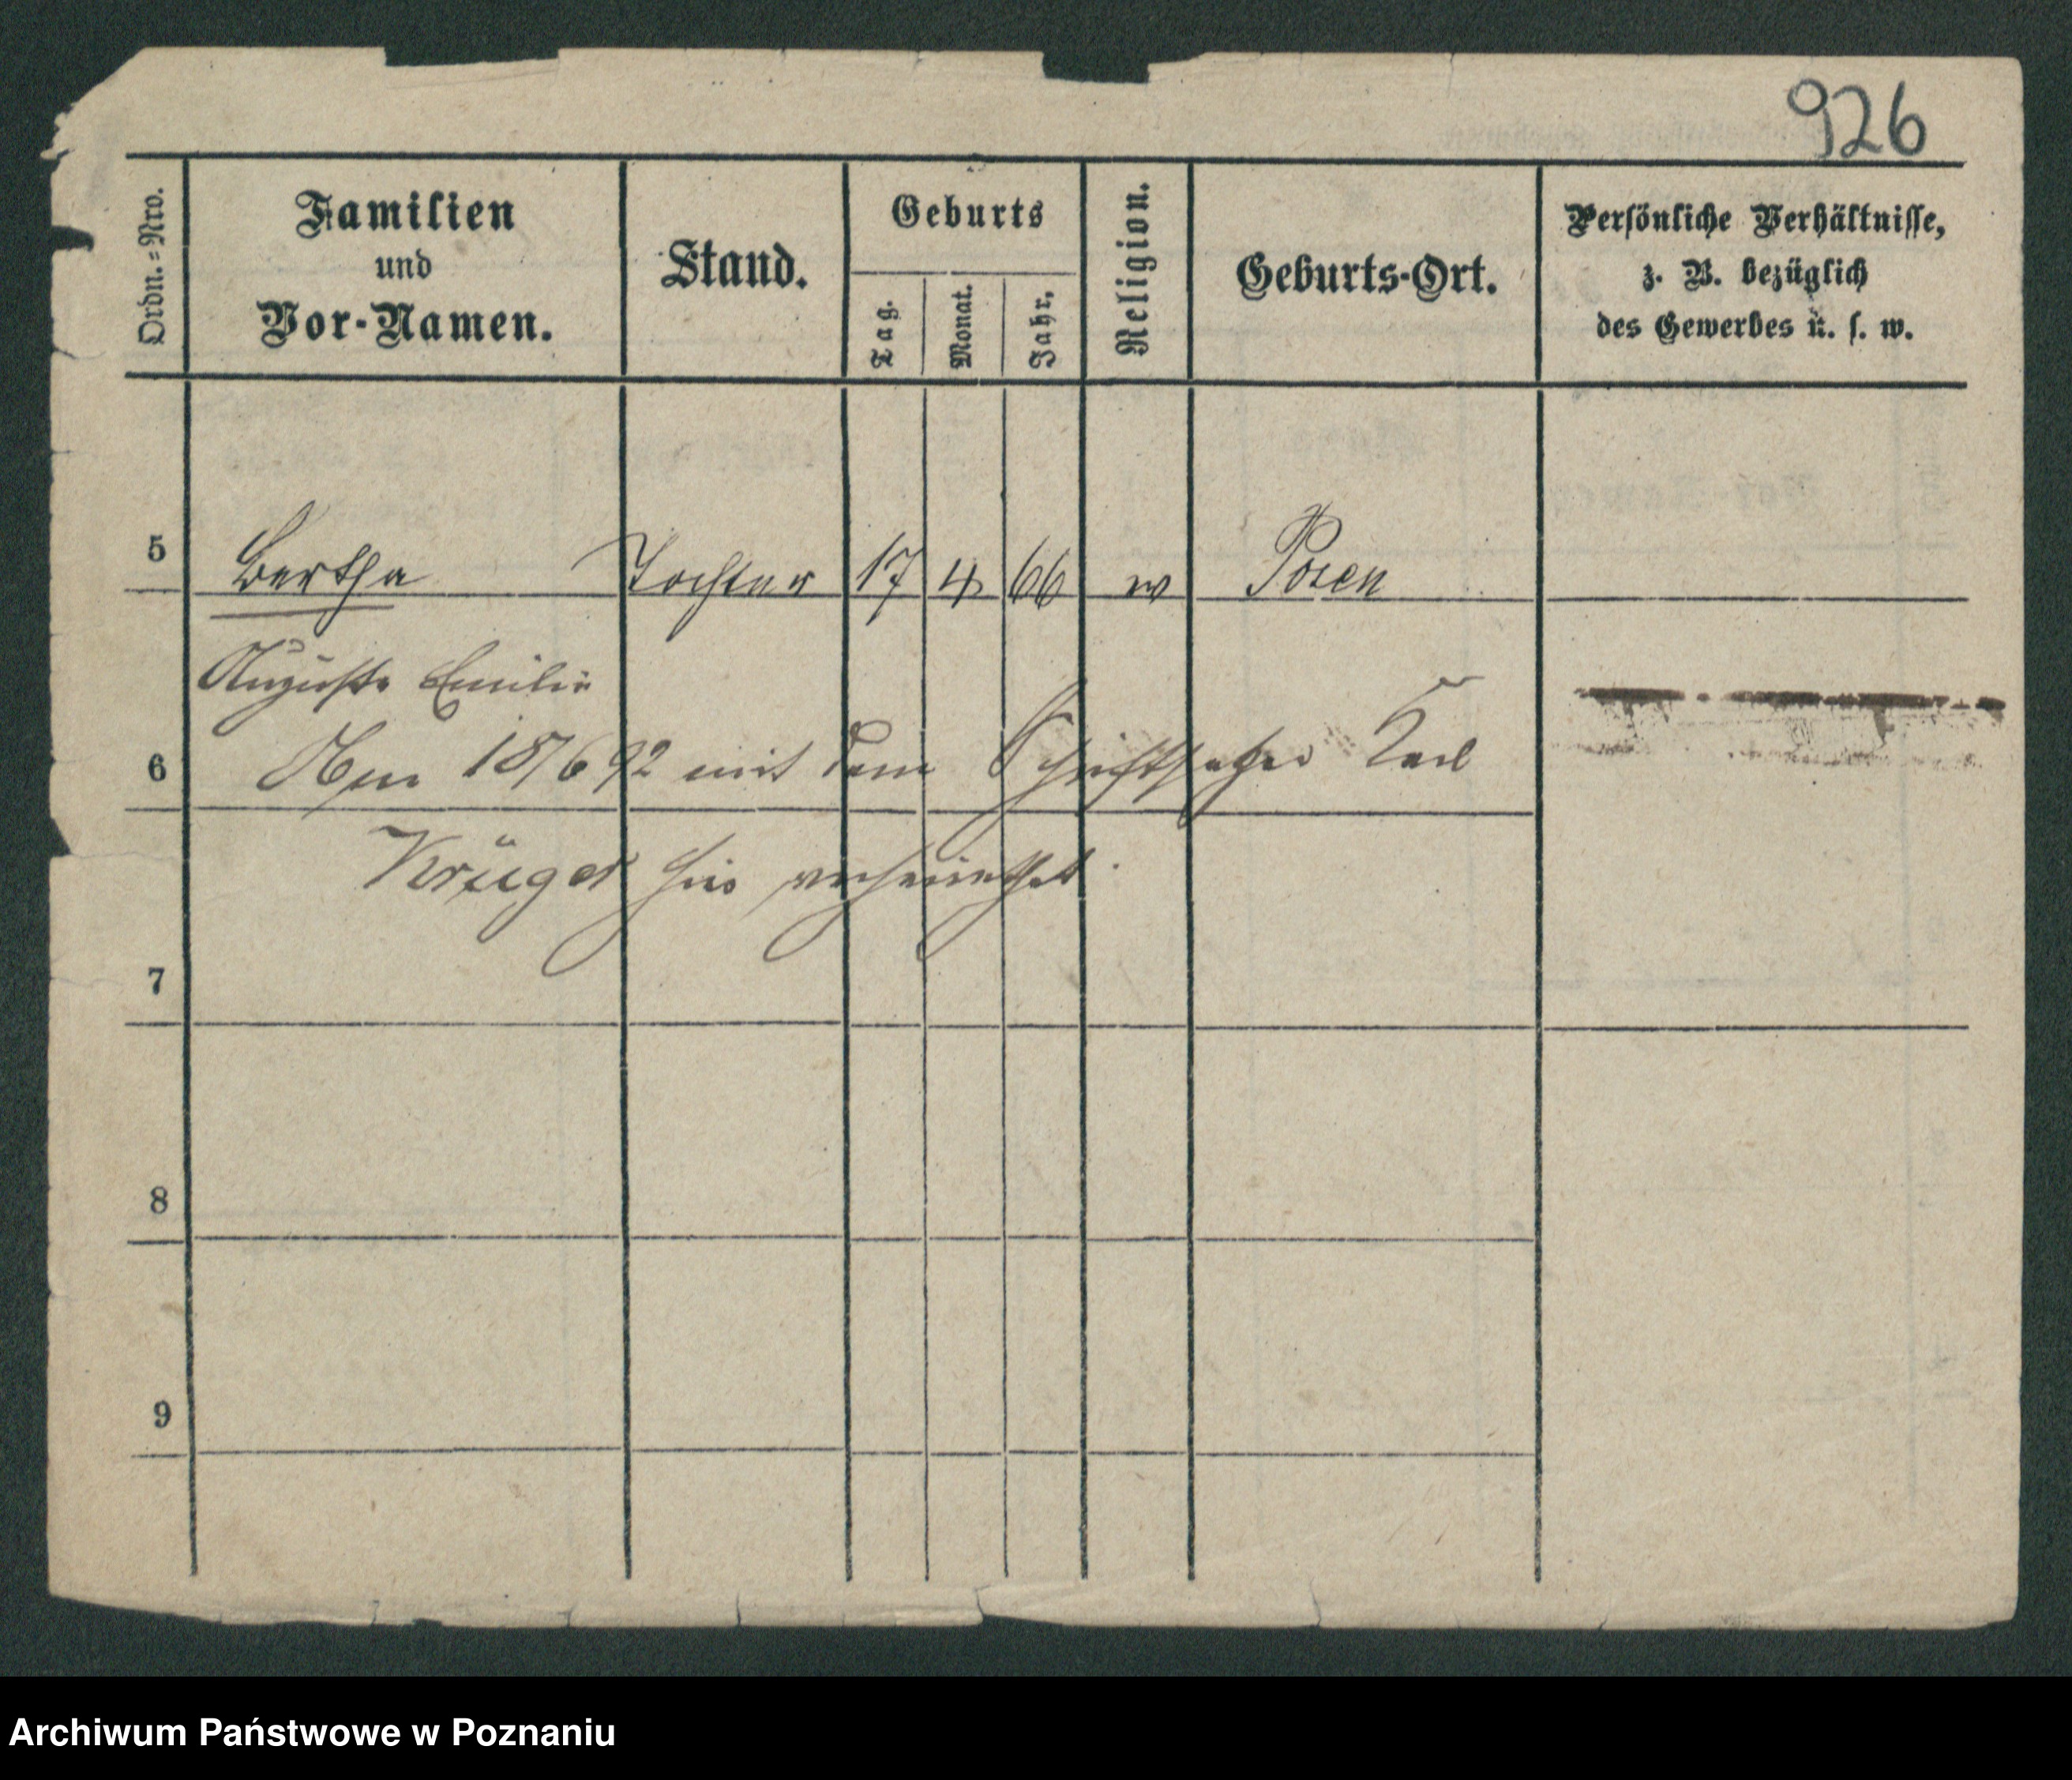 926
Ordn.=Nro.
Familien
und
Vor-Namen.
Stand.
Geburts
Tag.
Monat.
Jahr.
Religion.
Geburts-Ort.
Persönliche Verhältnisse,
z. B. bezüglich
des Gewerbes u. s. w.
5 Bertha Tochter 17 4 66 w Posen
Auguste Emilie
6 Am 18/6 92 mit dem Schriftsetzer Karl
Krüger hier verheirathet.
7
8
9
Archiwum Państwowe w Poznaniu